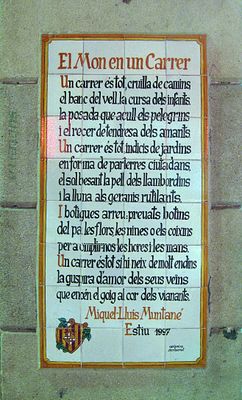 El Mon en un Carrer
Un carrer és tot, cruïlla de camins
el banc del vell, la cursa dels infants,
la posada que acull els pelegrins
i el recer de tendresa dels amants.
Un carrer és tot, indicis de jardins
en forma de parterres ciutadans,
el sol besant la pell dels llambordins
i la lluna als geranis rutilants.
I botigues arreu: preuats botins
del pa les flors, les nines o els coixins
per a omplir-nos les hores i les mans.
Un carrer és tot si hi neix de molt endins
la guspira d'amor dels seus veïns
que encén el goig al cor dels vianants.
Miquel-Lluís Muntané
Estiu 1997